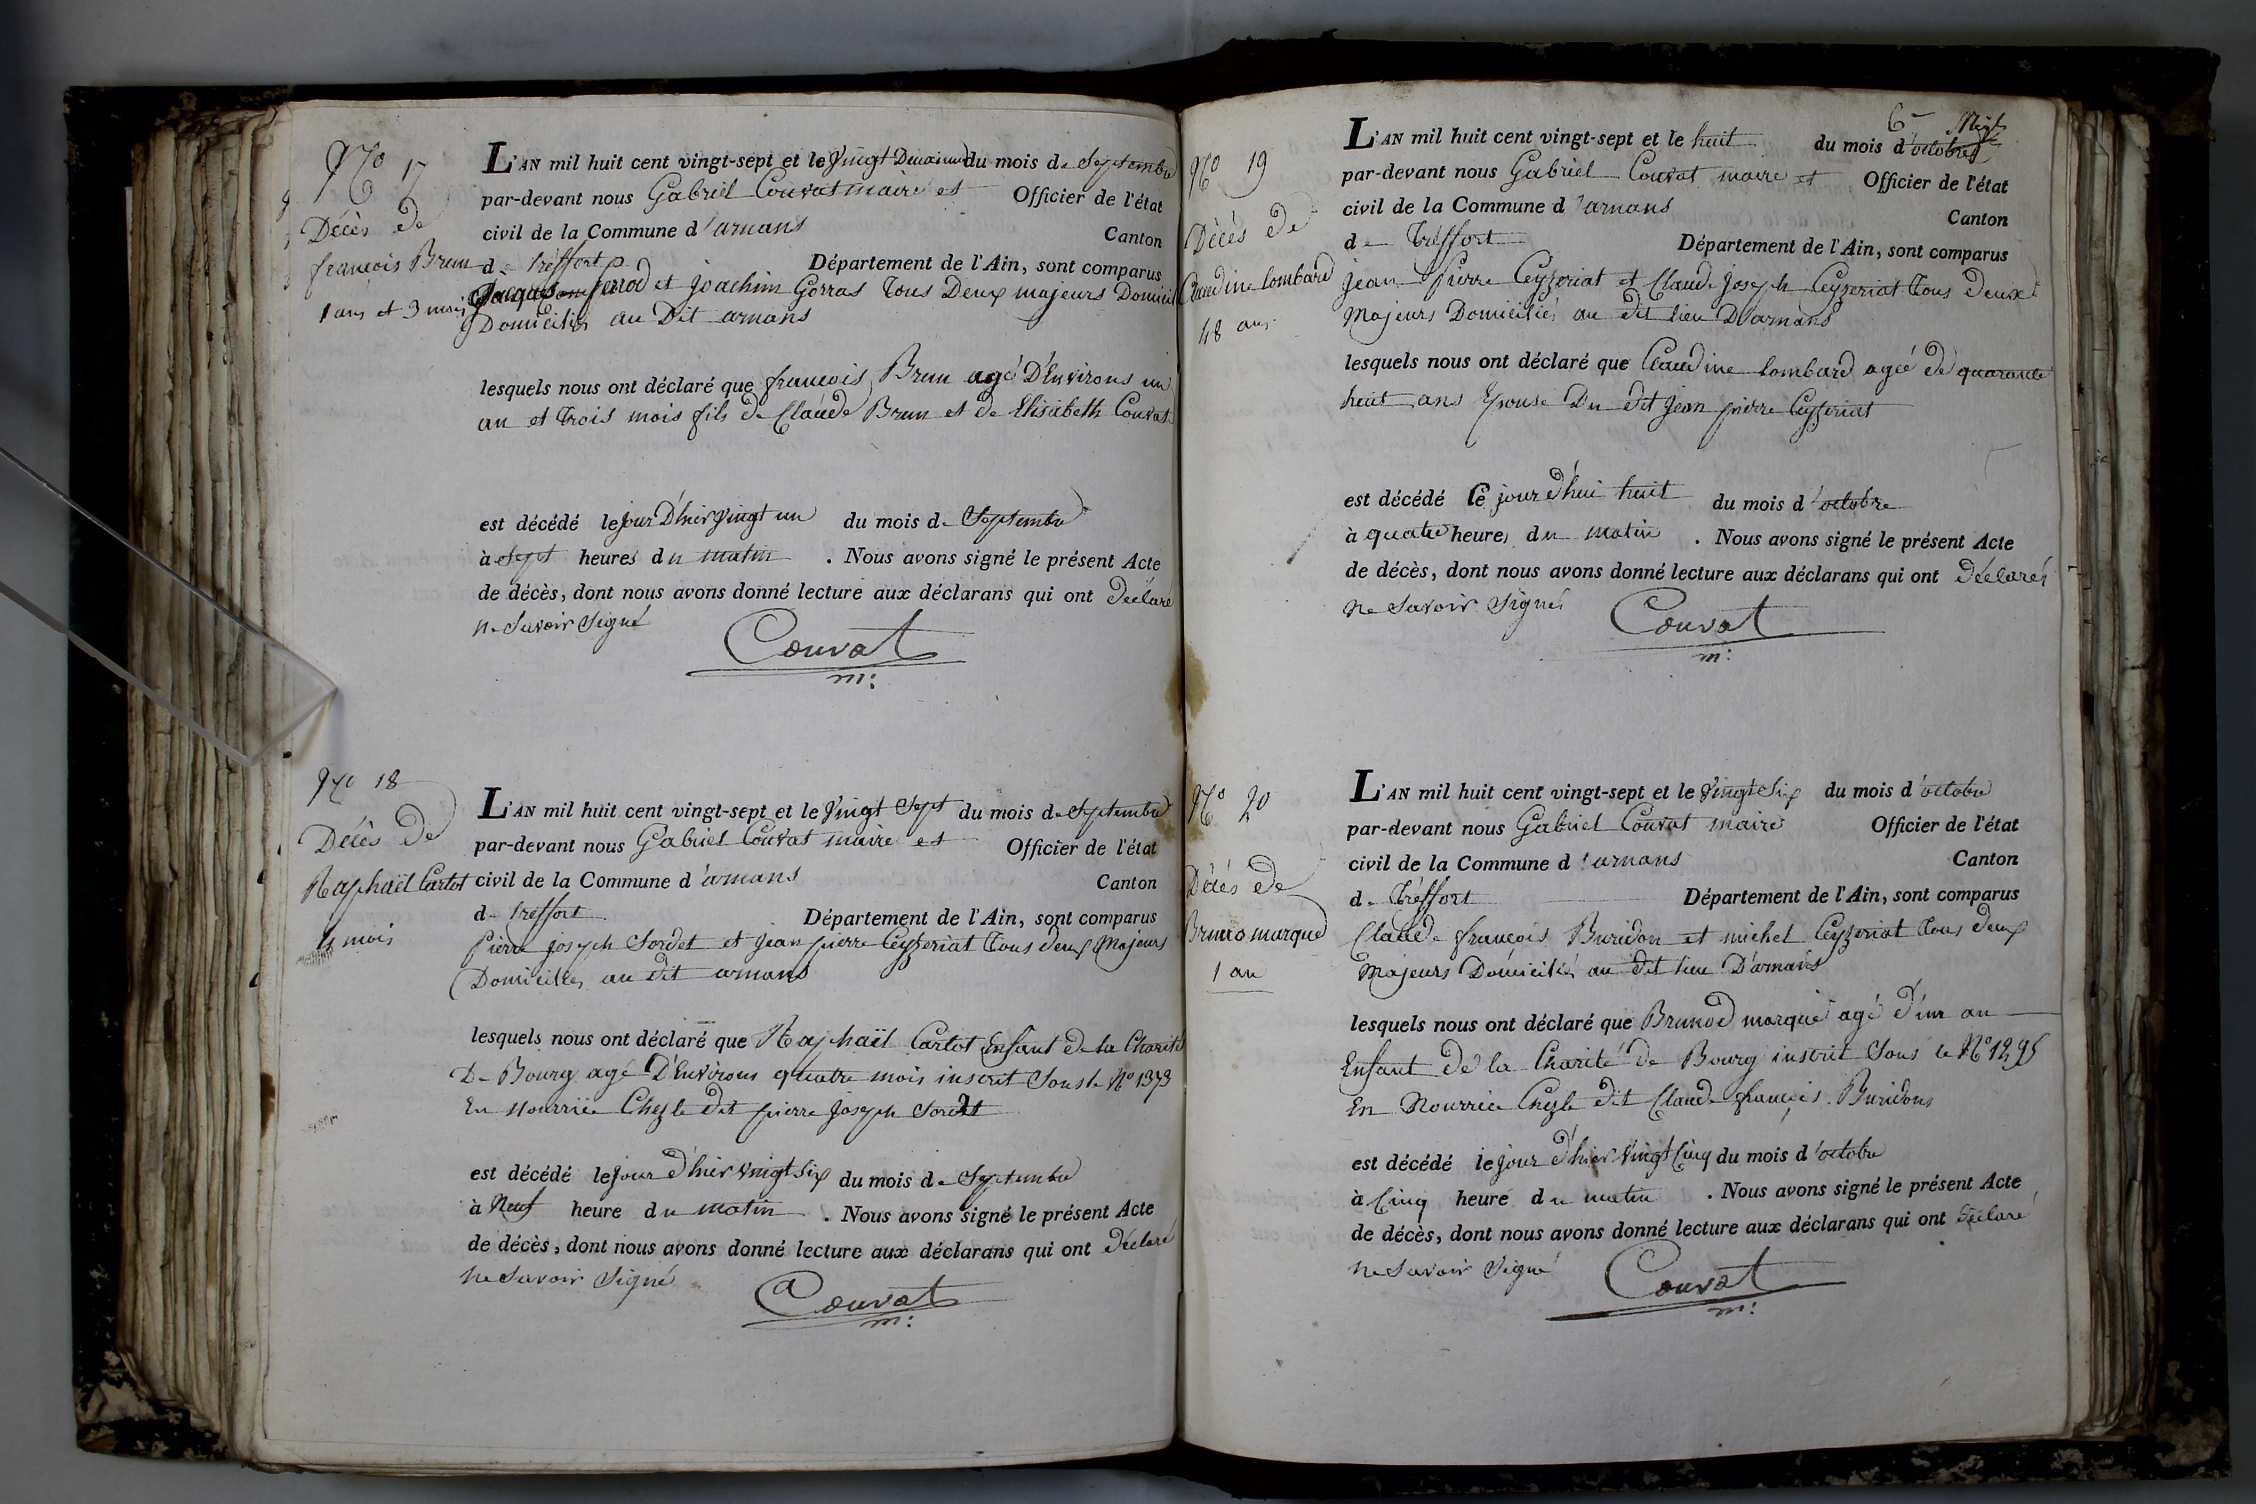 No 17
Décès de
françois Brun
1 ans et 3 mois
L'AN mil huit cent vingt-sept et le vingt Deuxieme du mois de Septembre
par-devant nous Gabriel Couvat maire et Officier de l'état
civil de la Commune d'arnans Canton
de Tréffort Département de l'Ain, sont comparus
et joachim Gorras tous Deux majeurs
Domiciliés au Dit arnans
lesquels nous ont déclaré que françois Brun agé D'Environs un
an et trois mois fils de Claude Brun et de Elisabeth Couvat
est décédé le jour D'hier vingt un du mois de Septembre
à Sept heures du matin . Nous avons signé le présent Acte
de décès, dont nous avons donné lecture aux déclarans qui ont Déclaré
ne Savoir Signé
Couvat
m:
No 18
Décès de
Raphaël Cartot
4 mois
L'AN mil huit cent vingt-sept et le vingt Sept du mois de Septembre
par-devant nous Gabriel Couvat maire et Officier de l'état
civil de la Commune d'arnans Canton
de tréffort Département de l'Ain, sont comparus
pierre joseph Sordet et jean pierre Ceyzeriat tous deux Majeurs
Domiciliés au dit arnans
lesquels nous ont déclaré que Raphaël Cartot Enfant de la Charité
De Bourg agé D'Environs quatre mois inscrit Sous le No 1373
En Nourrice Chez le dit pierre joseph Sordet
est décédé le jour d'hier vingt Six du mois de Septembre
à Neuf heure du matin . Nous avons signé le présent Acte
de décès, dont nous avons donné lecture aux déclarans qui ont Déclaré
ne Savoir Signé
Couvat
m:
6e
No 19
Décès de
Claudine lombard
48 ans
L'AN mil huit cent vingt-sept et le huit du mois d'octobre
par-devant nous Gabriel Couvat maire et Officier de l'état
civil de la Commune d'arnans Canton
de Tréffort Département de l'Ain, sont comparus
jean Pierre Ceyzeriat et Claude joseph Ceyzeriat tous deux
Majeurs Domiciliés au dit lieu D'arnans
lesquels nous ont déclaré que Claudine lombard agée de quarante
huit ans Epouse Du dit jean pierre Ceyzeriat
est décédé le jour d'hui huit du mois d'octobre
à quatre heures du matin . Nous avons signé le présent Acte
de décès, dont nous avons donné lecture aux déclarans qui ont Déclarés
ne Savoir Signés
Couvat
m:
No 20
Décès de
Bruno marque
1 an
L'AN mil huit cent vingt-sept et le vingt Six du mois d'octobre
par-devant nous Gabriel Couvat maire Officier de l'état
civil de la Commune d'arnans Canton
de Tréffort Département de l'Ain, sont comparus
Claude françois Buridon et michel Ceyzeriat tous deux
Majeurs Domiciliés au dit lieu D'arnans
lesquels nous ont déclaré que marque agé d'un an
Enfant de la Charité de Bourg inscrit Sous le No 1295
En Nourrice Chez le dit Claude françois Buridon
est décédé le jour d'hier vingt Cinq du mois d'octobre
à Cinq heure du matin . Nous avons signé le présent Acte
de décès, dont nous avons donné lecture aux déclarans qui ont Déclaré
ne Savoir Signé
Couvat
m: